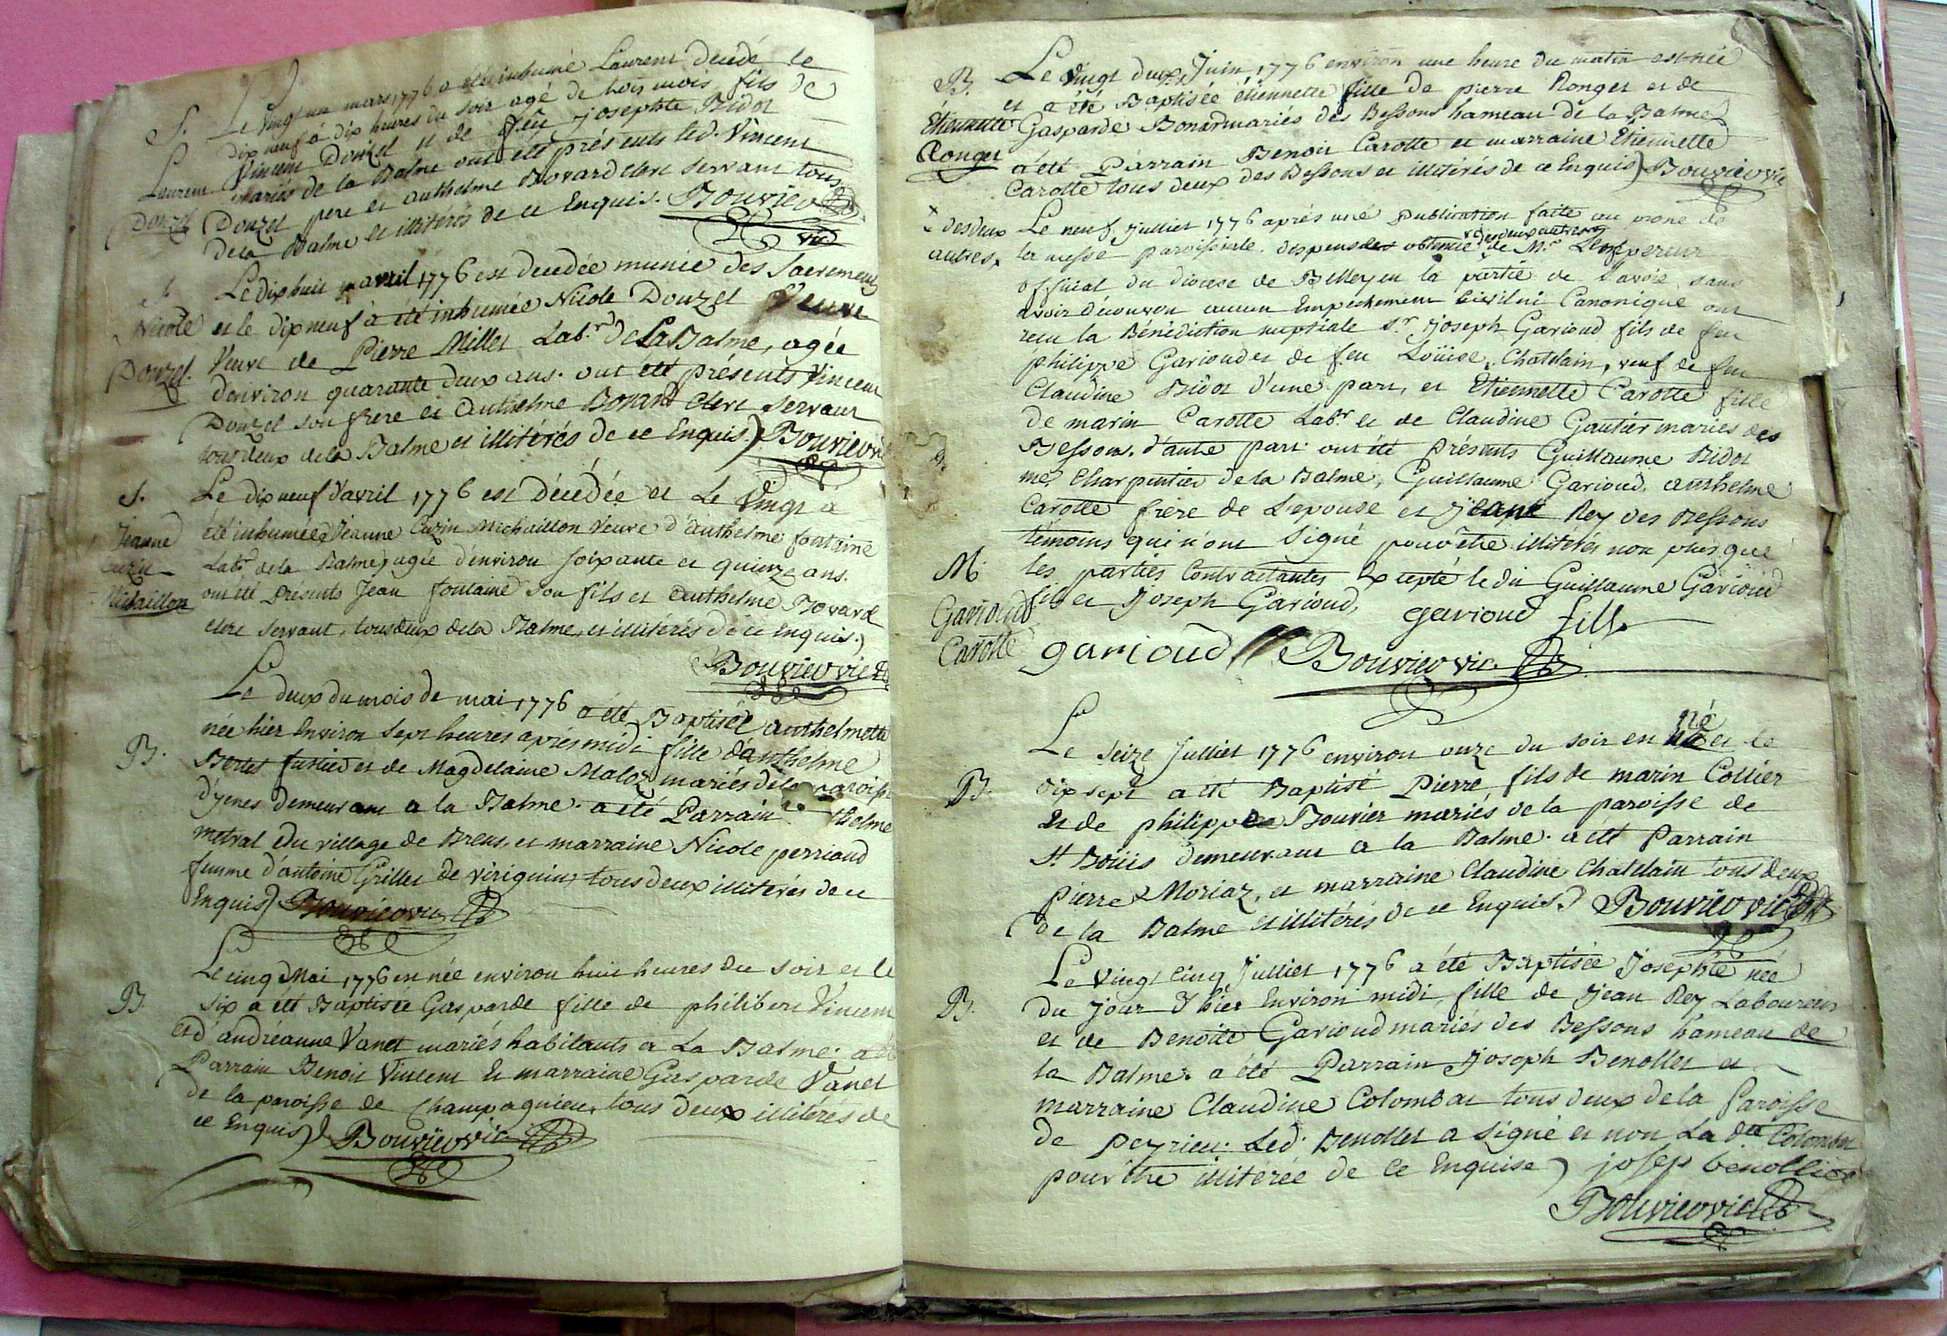 S.
Laurent
Douzel
Le vingt un mars 1776 a été inhumé Laurent decedé le
dix neuf a dix heures du soir agé de trois mois fils de
Vincent Douzel et de feüe josephte Bidot
mariés de la Balme ont été présents led. Vincent
Douzel pere et anthelme Bovard clerc servant tous
de la Balme et illitérés de ce Enquis. Bouvier vic
Nicole
Douzel
Le dixhuit avril 1776 est decedée munie des Sacremens
et le dixneuf à été inhumée Nicole Douzel
Veuve de Pierre Millet Labr. de La Balme, agée
d'environ quarante deux ans. ont été présents Vincent
Douzel son frere et Anthelme Bovard clerc servant
tous deux de la Balme et illitérés de ce Enquis) Bouvier vic
S.
Jeanne
Cuzin
Michaillon
Le dixneuf d'avril 1776 est décédée et Le Vingt a
été inhumée Jeanne Cuzin Michaillon veuve d'Anthelme fontaine
Labr. de la Balme, agée d'environ soixante et quinze ans.
ont été présents Jean fontaine son fils et Anthelme Bovard
clerc servant, tous deux de la Balme, et illitérés de ce Enquis.)
Bouvier vic
B.
Le deux du mois de mai 1776 a été Baptisée anthelmette
née hier Environ sept heures aprés midi fille d'anthelme
Bertet et de Magdelaine Maloz mariés de la paroisse
d'yenes demeurant a la Balme. a été Parrain
metral du village de Brens, et marraine Nicole perriand
femme d'antoine Grillet de virignin, tous deux illitérés de ce
Enquis) Bouvier vic
B
Le cinq Mai 1776 est née environ huit heures du soir et le
six a été Baptisée Gasparde fille de philibert Vincent
et d'andréanne Vanet mariés habitants a La Balme. a été
Parrain Benoit Vincent et marraine Gasparde Vanet
de la paroisse de Champagnieu, tous deux illitérés de
ce Enquis) Bouvier vic
B.
Étiennette
Ronget
Le vingt deux Juin 1776 environ une heure du matin est née
et a été Baptisée etiennette fille de pierre Ronget et de
Gasparde Bonard mariés des Bessons hameau de la Balme
a été Parrain Benoit Carotte et marraine Etiennette
Carotte tous deux des Bessons et illitérés de ce Enquis) Bouvier vic
x des deux
autres,
M.
Garioud
Carotte
Le neuf Julliet 1776 aprés une publication faite au prone de
la messe paroissiale, dispense obtenue de Mr. Lempereur
official du diocese de Belley en la partie de Savoie, sans
avoir découvert aucun Empechement Civil ni Canonique ont
recu la Bénédiction nuptiale Sr. Joseph Garioud fils de feu
philippe Garioud et de feu Loüise Chatelain, veuf de feu
Claudine Bidot d'une part, et Etiennette Carotte fille
de marin Carotte Labr. et de Claudine Gautier mariés des
Bessons, d'autre part. ont été présents Guillaume Bidot
me Charpentier de la Balme, Guillaume Garioud, anthelme
Carotte frere de Lepouse et Jean Rey des Bessons
témoins qui n'ont Signé pour être illiterés non plus que
les parties Contractantes Excepté le dit Guillaume Garioud
fils et Joseph Garioud,
garioud fils
garioud Bouvier vic
B.
Le seize Julliet 1776 environ onze du soir en né et le
dix sept a été Baptisé Pierre, fils de marin Collier
et de philippe Bouvier mariés de la paroisse de
St Boüis demeurant a la Balme. a été Parrain
Pierre Moriaz, et marraine Claudine Chatelain tous deux
de la Balme et illitérés de ce Enquis.) Bouvier vic
B.
Le vingt cinq Julliet 1776 a été Baptisée Josephte née
du Jour d'hier Environ midi, fille de Jean Rey Laboureur
et de Benoite Garioud mariés des Bessons hameau de
la Balme. a été Parrain Joseph Benollet et
marraine Claudine Colombat tous deux de la Paroisse
de peyrieu. Led. Benollet a signé et non La dte Colombat
pour être illitérée de ce Enquise) josep benollie
Bouvier vic